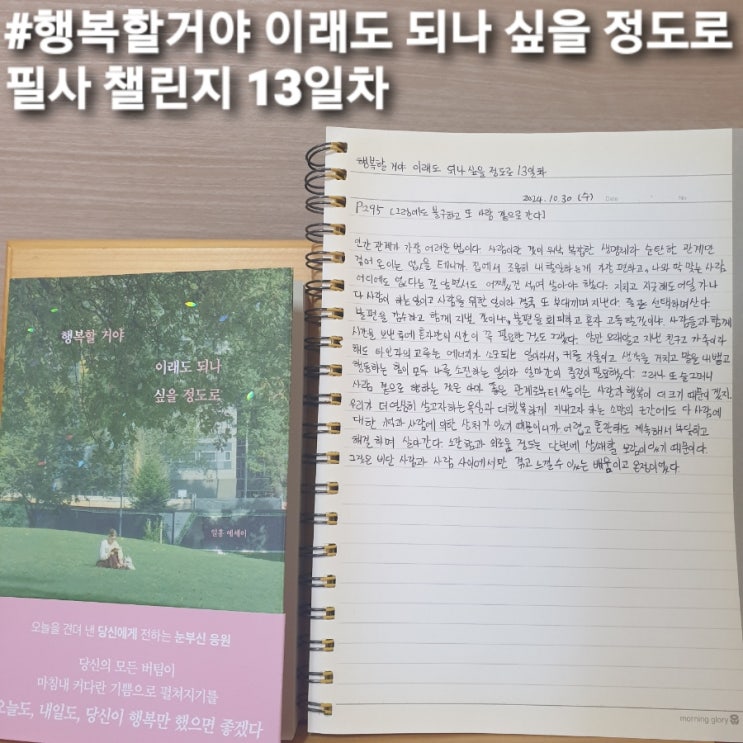 #행복할거야 이래도 되나 싶을 정도로
필사 챌린지 13일차
행복할 거야 이래도 되나 싶을 정도로 13일차
2024. 10. 30 (수)
Date
No
P295 [그럼에도 불구하고 또 사람 곁으로 간다]
인간 관계가 가장 어려운 법이다. 사람이란 것이 워낙 복잡한 생명체라 순탄한 관계만
겪어 온 이는 없을 테니까. 집에서 조용히 내 할일하는게 가장 편하고, 나와 딱 맞는 사람
어디에도 없다는 걸 알면서도 어쨌건 섞여 살아야 한다. 지치고 지긋해도 어딜 가나
다 사람이 하는 일이고 사람을 위한 일이라 결국 또 부대끼며 지낸다. 둘 중 선택하며 산다.
불편을 감수하고 함께 지낼 것이냐, 불편을 회피하고 혼자 고독할 것이냐. 사람들과 함께
시간을 보낸 후에 혼자만의 시간이 꼭 필요한 것도 그렇다. 암만 오래알고 지낸 친구고 가족이라
해도 타인과의 교류는 에너지가 소모되는 일이라서, 귀를 기울이고 생각을 거치고 말을 내뱉고
행동하는 일이 모두 나를 소진하는 일이라 얼마간의 충전이 필요했다. 그러나 또 슬그머니
사람 곁으로 향하는 것은 아마 좋은 관계로부터 쌓이는 사랑과 행복이 더 크기 때문이겠지.
우리가 더 열심히 살고자하는 욕심과 더 행복하게 지내고자 하는 소망의 근간에도 다 사람에
대한 기억과 사람에 의한 상처가 있기 때문이니까 어렵고 곤란해도 계속해서 부딪히고
해결하며 살아간다. 노곤함과 외로움 정도는 단번에 상쇄할 보람이 있기 때문이다.
그것은 비단 사람과 사람 사이에서만 겪고 느낄 수 있는 배움이고 온정이었다.
morning glory
행복할 거야
이래도 되나
싶을 정도로
일홍 에세이
오늘을 견뎌 낸 당신에게 전하는 눈부신 응원
당신의 모든 버팀이
마침내 커다란 기쁨으로 펼쳐지기를
오늘도, 내일도, 당신이 행복만 했으면 좋겠다